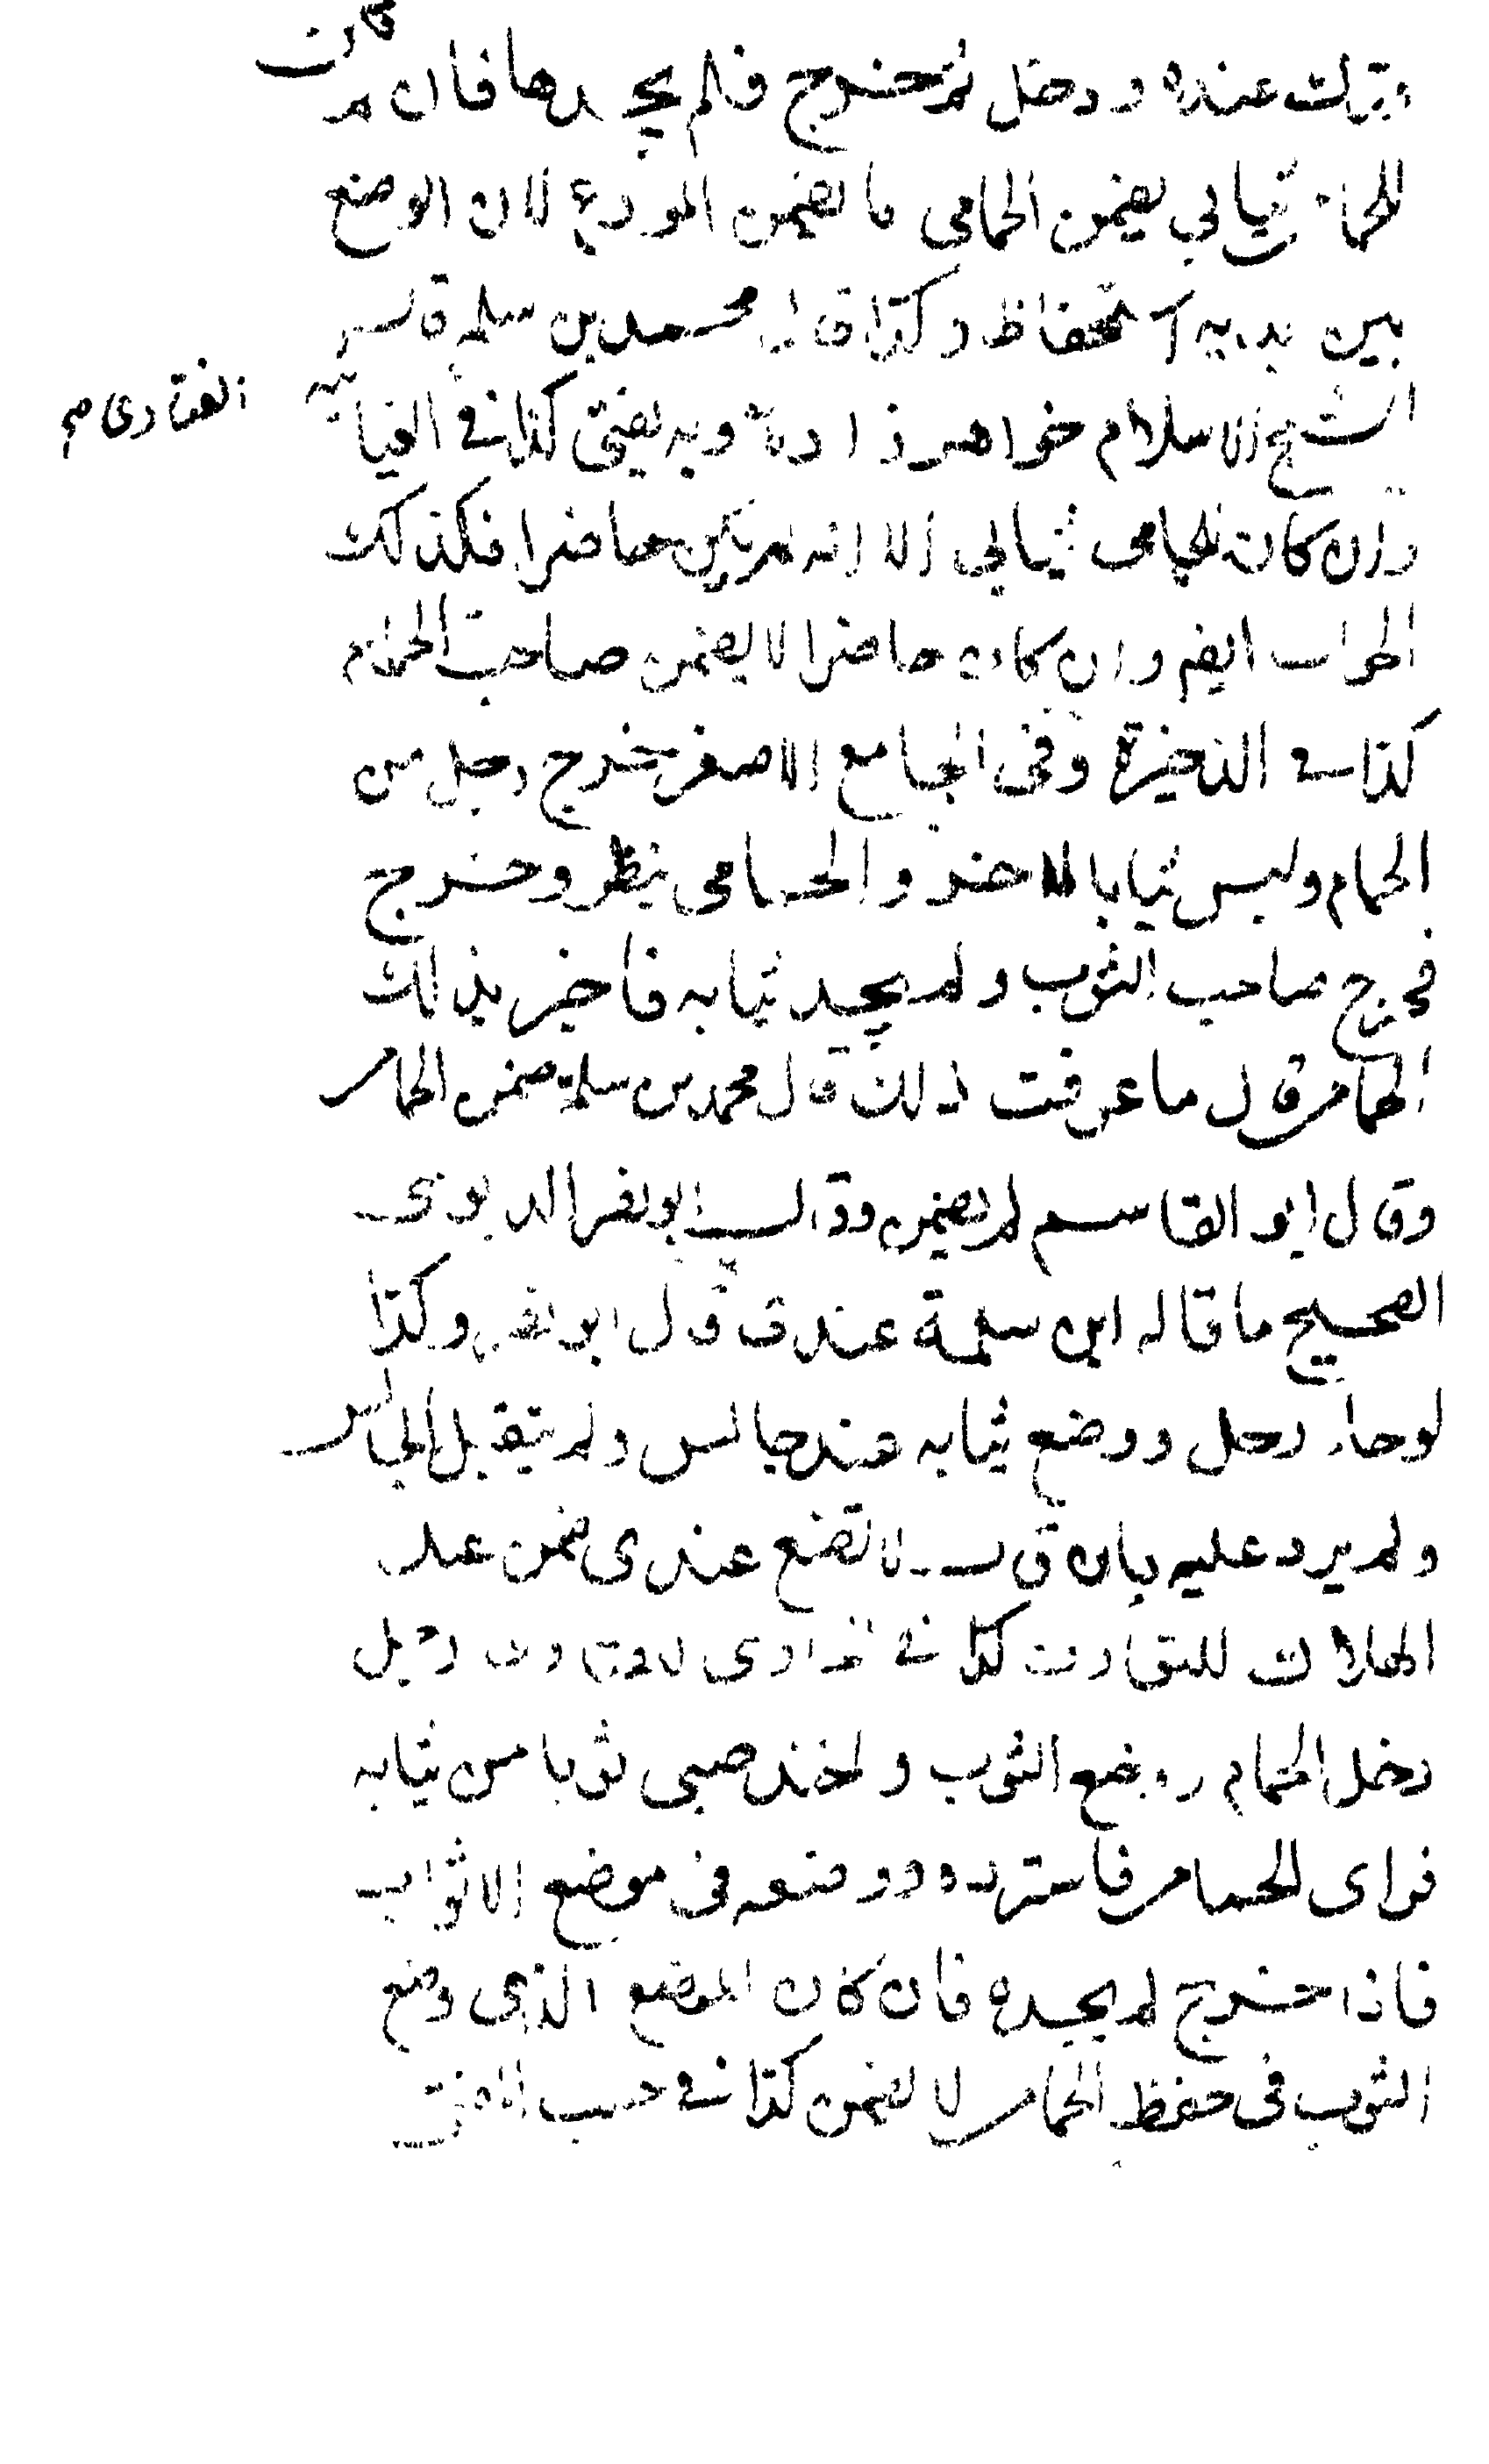 وتركت عنده ودخل ثم خرج فلم يجدها فان لم يكن
للحمامي ثيابي يضمن الحمامي ما يضمن المودع لان الوضع
بين يديه استحفاظ وكذا قال محمد بن سلمة قال
الشيخ الاسلام خواهر زاده وبه يفتى كذا في الغياثية
الفتاوى صح
وان كان للحامى ثيابي الا انه لم يكن حاضرا فكذلك
الجواب ايضا وان كان حاضرا لا يضمن صاحب الحمام
كذا في الذخيرة وفى الجامع الاصغر خرج رجل من
الحمام ولبس ثيابا للاخر والحمامى ينظر وخرج
فخرج صاحب الثوب ولم يجد ثيابه فاخبر بذلك
الحمامى قال ما عرفت ذلك قال محمد بن سلمة ضمن الحمامى
وقال ابو القاسم لم يضمن وقال ابو نصر الدبوسى
الصحيح ما قاله ابن سلمة عندى قال ابو نصر وكذا
لو جاء رجل ووضع ثيابه عند جالس ولم يتقبل الجالس
ولم يرد عليه بان قال لا تضع عندى ضمن عند
الهلاك للتعارف كذا في رجل
دخل الحمام ووضع الثوب واخذ صبى ثوبا من ثيابه
فراى الحمامى فاسترده ووضعه فى موضع الاثواب
فاذا خرج لم يجده فان كان الموضع الذى وضع
الثوب فى حفظ الحمامى لا يضمن كذا في حسب المفتى